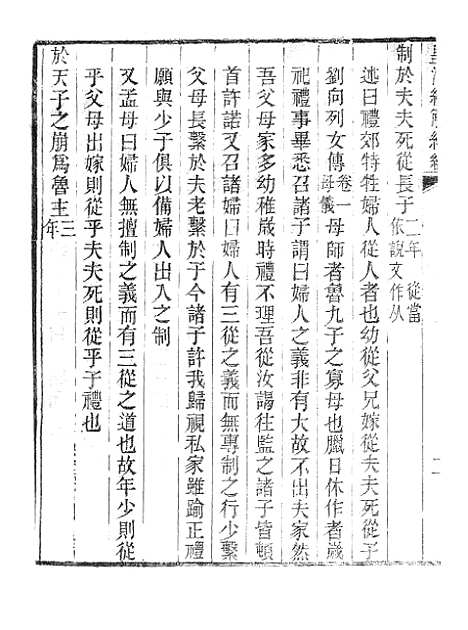 皇清經解續編
制於夫夫死從長子二年 從當依說文作从
述曰禮郊特牲婦人從人者也幼從父兄嫁從夫夫死從子
劉向列女傳卷一母儀母師者魯九子之寡母也臘日休作者歲
祀禮事畢悉召諸子謂曰婦人之義非有大故不出夫家然
吾父母家多幼稚歲時禮不理吾從汝謁往監之諸子皆頓
首許諾又召諸婦曰婦人有三從之義而無專制之行少繫
父母長繫於夫老繫於子今諸子許我歸視私家雖踰正禮
願與少子俱以備婦人出入之制
又孟母曰婦人無擅制之義而有三從之道也故年少則從
乎父母出嫁則從乎夫夫死則從乎子禮也
於天子之崩爲魯主三年